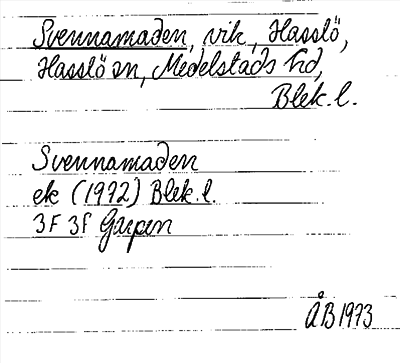 Svennamaden, vik, Hasslö,
Hasslö sn, Medelstads hd,
Blek. l.
Svennamaden
ek (1972) Blek. l.
3F 3f Garpen
ÅB 1973